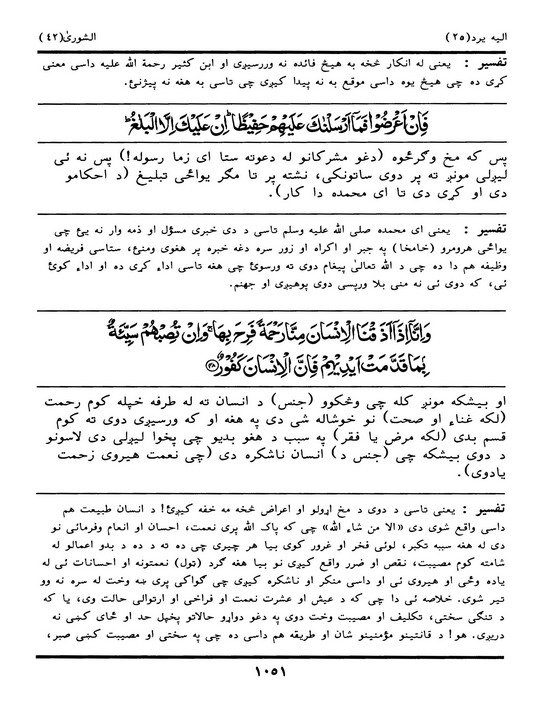 الیه یرد(٢٥) الشوریٰ(٤٢)
تفسیر : یعنی له انکار څخه به هیڅ فائده نه وررسیږی او ابن کثیر رحمة الله علیه داسی معنی
کړی ده چی هیڅ یوه داسی موقع به نه پیدا کیږی چی تاسی به هغه نه پیژنئ.
فَاِنْ اَعْرَضُوْا فَمَآ اَرْسَلْنٰكَ عَلَيْهِمْ حَفِيْظًا ۭ اِنْ عَلَيْكَ اِلَّا الْبَلٰغُ ۭ
پس که مخ وګرځوه (دغو مشرکانو له دعوته ستا ای زما رسوله!) پس نه ئی
لیږلی مونږ ته پر دوی ساتونکی، نشته پر تا مګر یواځی تبلیغ (د احکامو
دی او کړی دی تا ای محمده دا کار).
تفسیر : یعنی ای محمده صلی الله علیه وسلم تاسی د دی خبری مسؤل او ذمه وار نه یئ چی
یواځی هرومرو (خامخا) په جبر او اکراه او زور سره دغه خبره پر هغوی ومنئ، ستاسی فریضه او
وظیفه هم دا ده چی د الله تعالیٰ پیغام دوی ته ورسوئ چی هغه تاسی اداء کړی ده او اداء کوئ
ئی، که دوی ئی نه منی بلا ورپسی دوی پوهیږی او جهنم.
وَاِنَّآ اِذَآ اَذَقْنَا الْاِنْسَانَ مِنَّا رَحْمَةً فَرِحَ بِهَا ۚ وَاِنْ تُصِبْهُمْ سَيِّئَةٌۢ
بِمَا قَدَّمَتْ اَيْدِيْهِمْ فَاِنَّ الْاِنْسَانَ كَفُوْرٌ ﴿٤٨﴾
او بیشکه مونږ کله چی وڅکوو (جنس) د انسان ته له طرفه خپله کوم رحمت
(لکه غناء او صحت) نو خوشاله شی دی په هغه او که ورسیږی دوی ته کوم
قسم بدی (لکه مرض یا فقر) په سبب د هغو بدیو چی پخوا لیږلی دی لاسونو
د دوی بیشکه چی (جنس د) انسان ناشکره دی (چی نعمت هیروی زحمت
یادوی).
تفسیر : یعنی تاسی د دوی د مخ اړولو او اعراض څخه مه خفه کیږئ! د انسان طبیعت هم
داسی واقع شوی دی «الا من شاء الله» چی که پاک الله پری نعمت، احسان او انعام وفرمائی نو
دی له هغه سببه تکبر، لوئی فخر او غرور کوی بیا هر چیری چی ده ته د ده د بدو اعمالو له
شامته کوم مصیبت، نقص او ضرر واقع کیږی نو بیا هغه ګرد (ټول) نعمتونه او احسانات ئی له
یاده وځی او هیروی ئی او داسی منکر او ناشکره کیږی چی ګواکی پری ښه وخت له سره نه وو
تیر شوی. خلاصه ئی دا چی که د عیش او عشرت نعمت او فراخی او ارتوالی حالت وی، یا که
د تنګی سختی، تکلیف او مصیبت وخت دوی په دغو دواړو حالاتو پخپل حد او ځای کښی نه
دریږی. هو! د قانتینو مؤمنینو شان او طریقه هم داسی ده چی په سختی او مصیبت کښی صبر،
١٠٥١